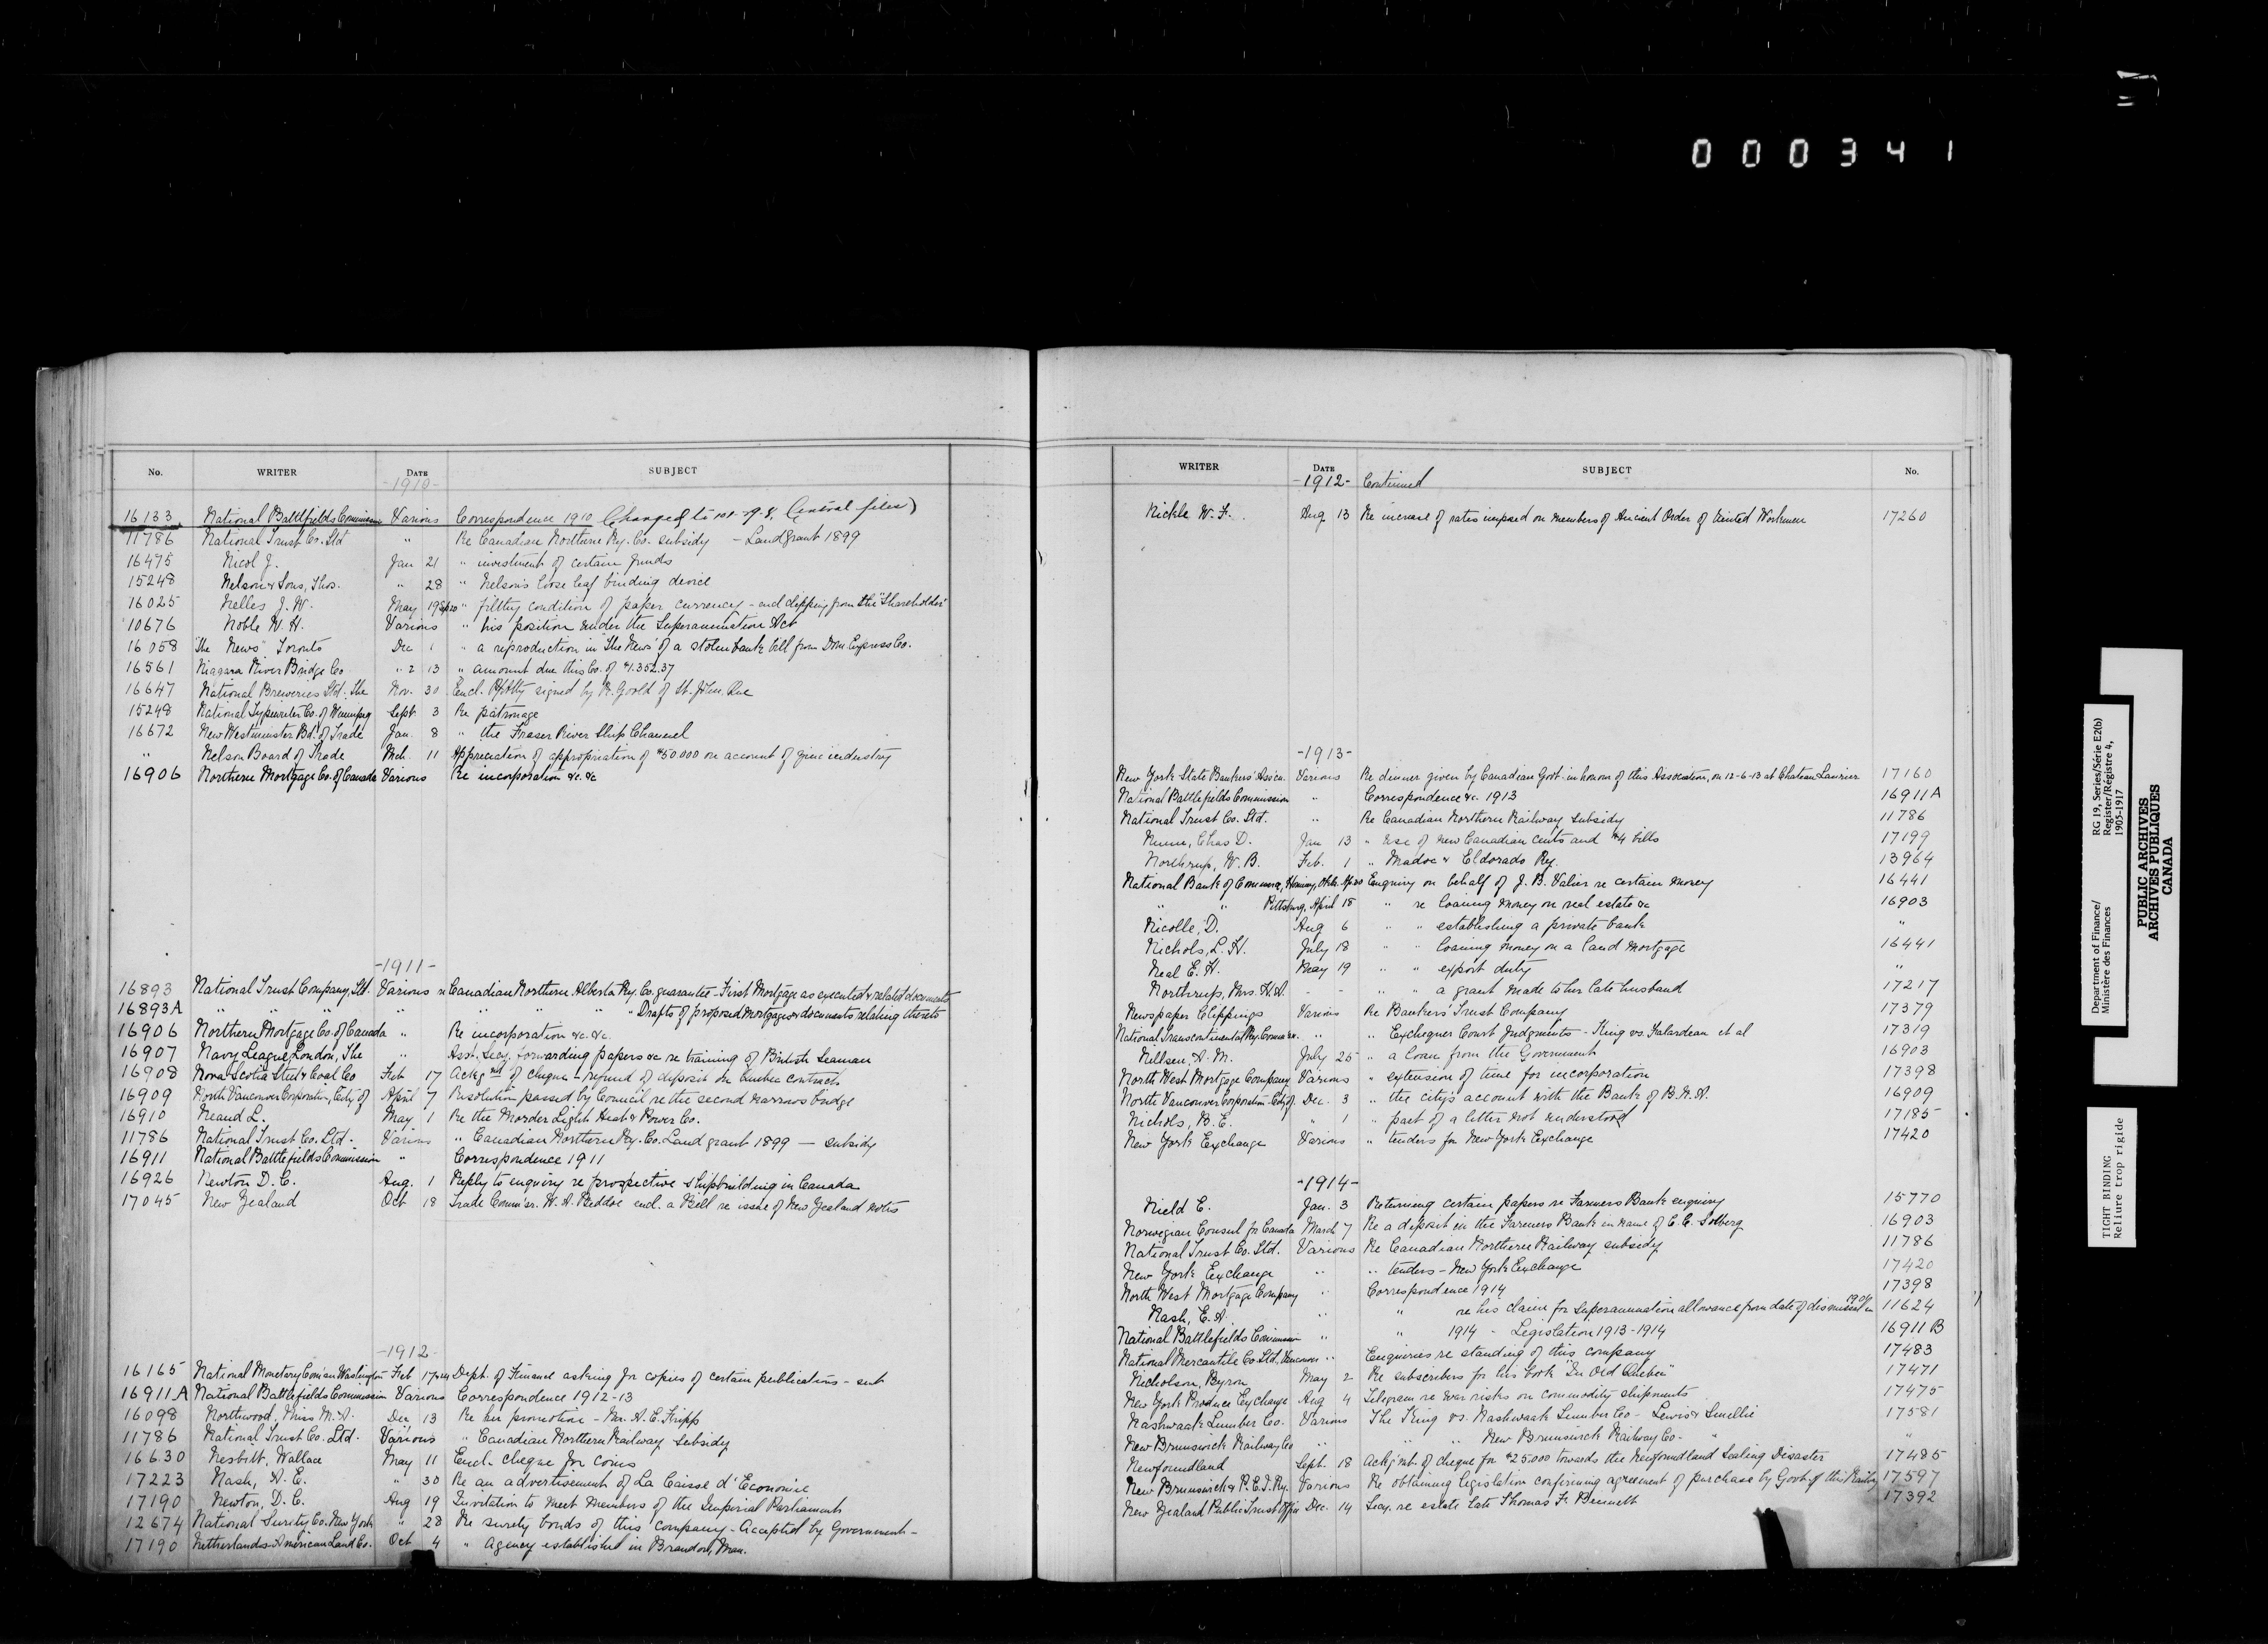 000341
No. WRITER DATE SUBJECT
-1910-
16133 National Battlefields Commission Various Correspondence 1910 (Changed to 101-9-8, General files)
11786 National Trust Co. Ltd " Re Canadian Northern Ry. Co. subsidy - Land grant 1899
16475 Nicol J. Jan 21 " investment of certain funds
15248 Nelson & Sons, Thos. " 28 " Nelson's loose leaf binding device
16025 Nelles J. W. May 19 " filthy condition of paper currency - encl clipping from the "Shareholder"
10676 Noble W. H. Various " his position under the Superannuation Act
16058 "The News" Toronto Dec 1 " a reproduction in "The News" of a stolen bank bill from Dom. Express Co.
16561 Niagara River Bridge Co " 2 13 " amount due this Co. of $1.352.37
16647 National Breweries Ltd. The Nov. 30 Encl. signed by R. Goold of St. John, Que
15248 National Typewriter Co. of Winnipeg Sept 3 Re patronage
16672 New Westminster Bd. of Trade Jan. 8 " the Fraser River Ship Channel
" Nelson Board of Trade Mch. 11 Appreciation of appropriation of $50.000 on account of zinc industry
16906 Northern Mortgage Co. of Canada Various Re incorporation &c. &c
-1911-
16893 National Trust Company, Ltd. Various re Canadian Northern Alberta Ry. Co. guarantee - First Mortgage as executed & related documents
16893A " " " " " Drafts of proposed Mortgages & documents relating thereto
16906 Northern Mortgage Co. of Canada " Re incorporation &c. &c.
16907 Navy League London, The " Asst. Secy. forwarding papers &c re training of British Seamen
16908 Nova Scotia Steel & Coal Co Feb 17 Ackgmt of cheque - refund of deposit on Quebec contract
16909 North Vancouver Corporation, City of April 7 Resolution passed by Council re the second narrows bridge
16910 Neand L. May 1 Re the Morder Light Heat & Power Co.
11786 National Trust Co. Ltd. Various " Canadian Northern Ry. Co. Land grant 1899 — subsidy
16911 National Battlefields Commission " Correspondence 1911
16926 Newton D. C. Aug. 1 Reply to enquiry re prospective shipbuilding in Canada
17045 New Zealand Oct 18 Trade Comm'sr. W. A. Beddoe encl. a Bill re issue of New Zealand notes
-1912-
16165 National Monetary Com'sn Washington Feb 17 Dept. of Finance asking for copies of certain publications - sent
16911A National Battlefields Commission Various Correspondence 1912-13
16098 Northwood, Miss M. A. Dec 13 Re her promotion - Mr. A. E. Fripp
11786 National Trust Co. Ltd. Various " Canadian Northern Railway Subsidy
16630 Nesbitt, Wallace May 11 Encl. cheque for coins
17223 Nash, A. E. " 30 Re an advertisement of La Caisse d'Economie
17190 Newton, D. C. Aug 19 Invitation to meet members of the Imperial Parliament
12674 National Surety Co. New York " 28 Re surety bonds of this company - Accepted by Government -
17190 Netherlands American Land Co. Oct 4 " Agency established in Brandon, Man.
WRITER DATE SUBJECT No.
-1912- Continued
Nickle W. F. Aug 13 Re increase of rates imposed on members of Ancient Order of United Workmen 17260
-1913-
New York State Bankers' Assc'n. Various Re dinner given by Canadian Govt. in honour of this Association, on 12-6-13 at Chateau Laurier 17160
National Battlefields Commission " Correspondence &c. 1913 16911A
National Trust Co. Ltd. " Re Canadian Northern Railway Subsidy 11786
Nunn, Chas D. Jan 13 " use of new Canadian cents and $4 bills 17199
Northrup, W. B. Feb. 1 " Madoc & Eldorado Ry. 13964
National Bank of Commerce, Hominy, Okla. Ap 20 Enquiry on behalf of J. B. Valier re certain money 16441
" " Pittsburg, April 18 " re loaning money on real estate &c 16903
Nicolle, D. Aug 6 " " establishing a private bank "
Nichols, L. H. July 18 " " loaning money on a land mortgage 16441
Neal E. H. May 19 " " export duty "
Northrup, Mrs. H. A. - - " " a grant made to her late husband 17217
Newspaper Clippings Various Re Bankers' Trust Company 17379
National Transcontinental Ry. Comm'sn. " " Exchequer Court Judgments - King vs. Falardeau et al 17319
Nillsen, A. M. July 25 " a loan from the Government 16903
North West Mortgage Company Various " extension of time for incorporation 17398
North Vancouver Corporation City of Dec. 3 " the city's account with the Bank of B. N. A. 16909
Nichols, B. E. " 1 " part of a letter not understood 17185
New York Exchange Various " tenders for New York Exchange 17420
-1914-
Nield E. Jan. 3 Returning certain papers re Farmers Bank enquiry 15770
Norwegian Consul for Canada March 7 Re a deposit in the Farmers Bank in name of C. C. Solberg 16903
National Trust Co. Ltd. Various Re Canadian Northern Railway subsidy 11786
New York Exchange " " tenders - New York Exchange 17420
North West Mortgage Company " Correspondence 1914 17398
Nash, E. A. " " re his claim for superannuation allowance from date of dismissal in 11624
National Battlefields Commission " " 1914 - Legislation 1913-1914 16911B
National Mercantile Co. Ltd., Vancouver " Enquiries re standing of this company 17483
Nicholson, Byron May 2 Re subscribers for his book "In Old Quebec" 17471
New York Produce Exchange Aug 4 Telegram re war risks on commodity shipments 17475
Nashwaak Lumber Co. Various The King vs. Nashwaak Lumber Co - Lewis & Smellie 17581
New Brunswick Railway Co " " " New Brunswick Railway Co - " "
Newfoundland Sept. 18 Ackg'mt. of cheque for $25.000 towards the Newfoundland Sealing Disaster 17485
New Brunswick & P. E. I. Ry. Various Re obtaining legislation confirming agreement of purchase by Govt. of this Railway 17597
New Zealand Public Trust Office Dec. 14 Secy. re estate late Thomas F. Bennett 17392
Department of Finance/ RG 19, Series/Série E2(b)
Ministère des Finances Register/Régistre 4,
1905-1917
PUBLIC ARCHIVES
ARCHIVES PUBLIQUES
CANADA
TIGHT BINDING
Reliure trop rigide